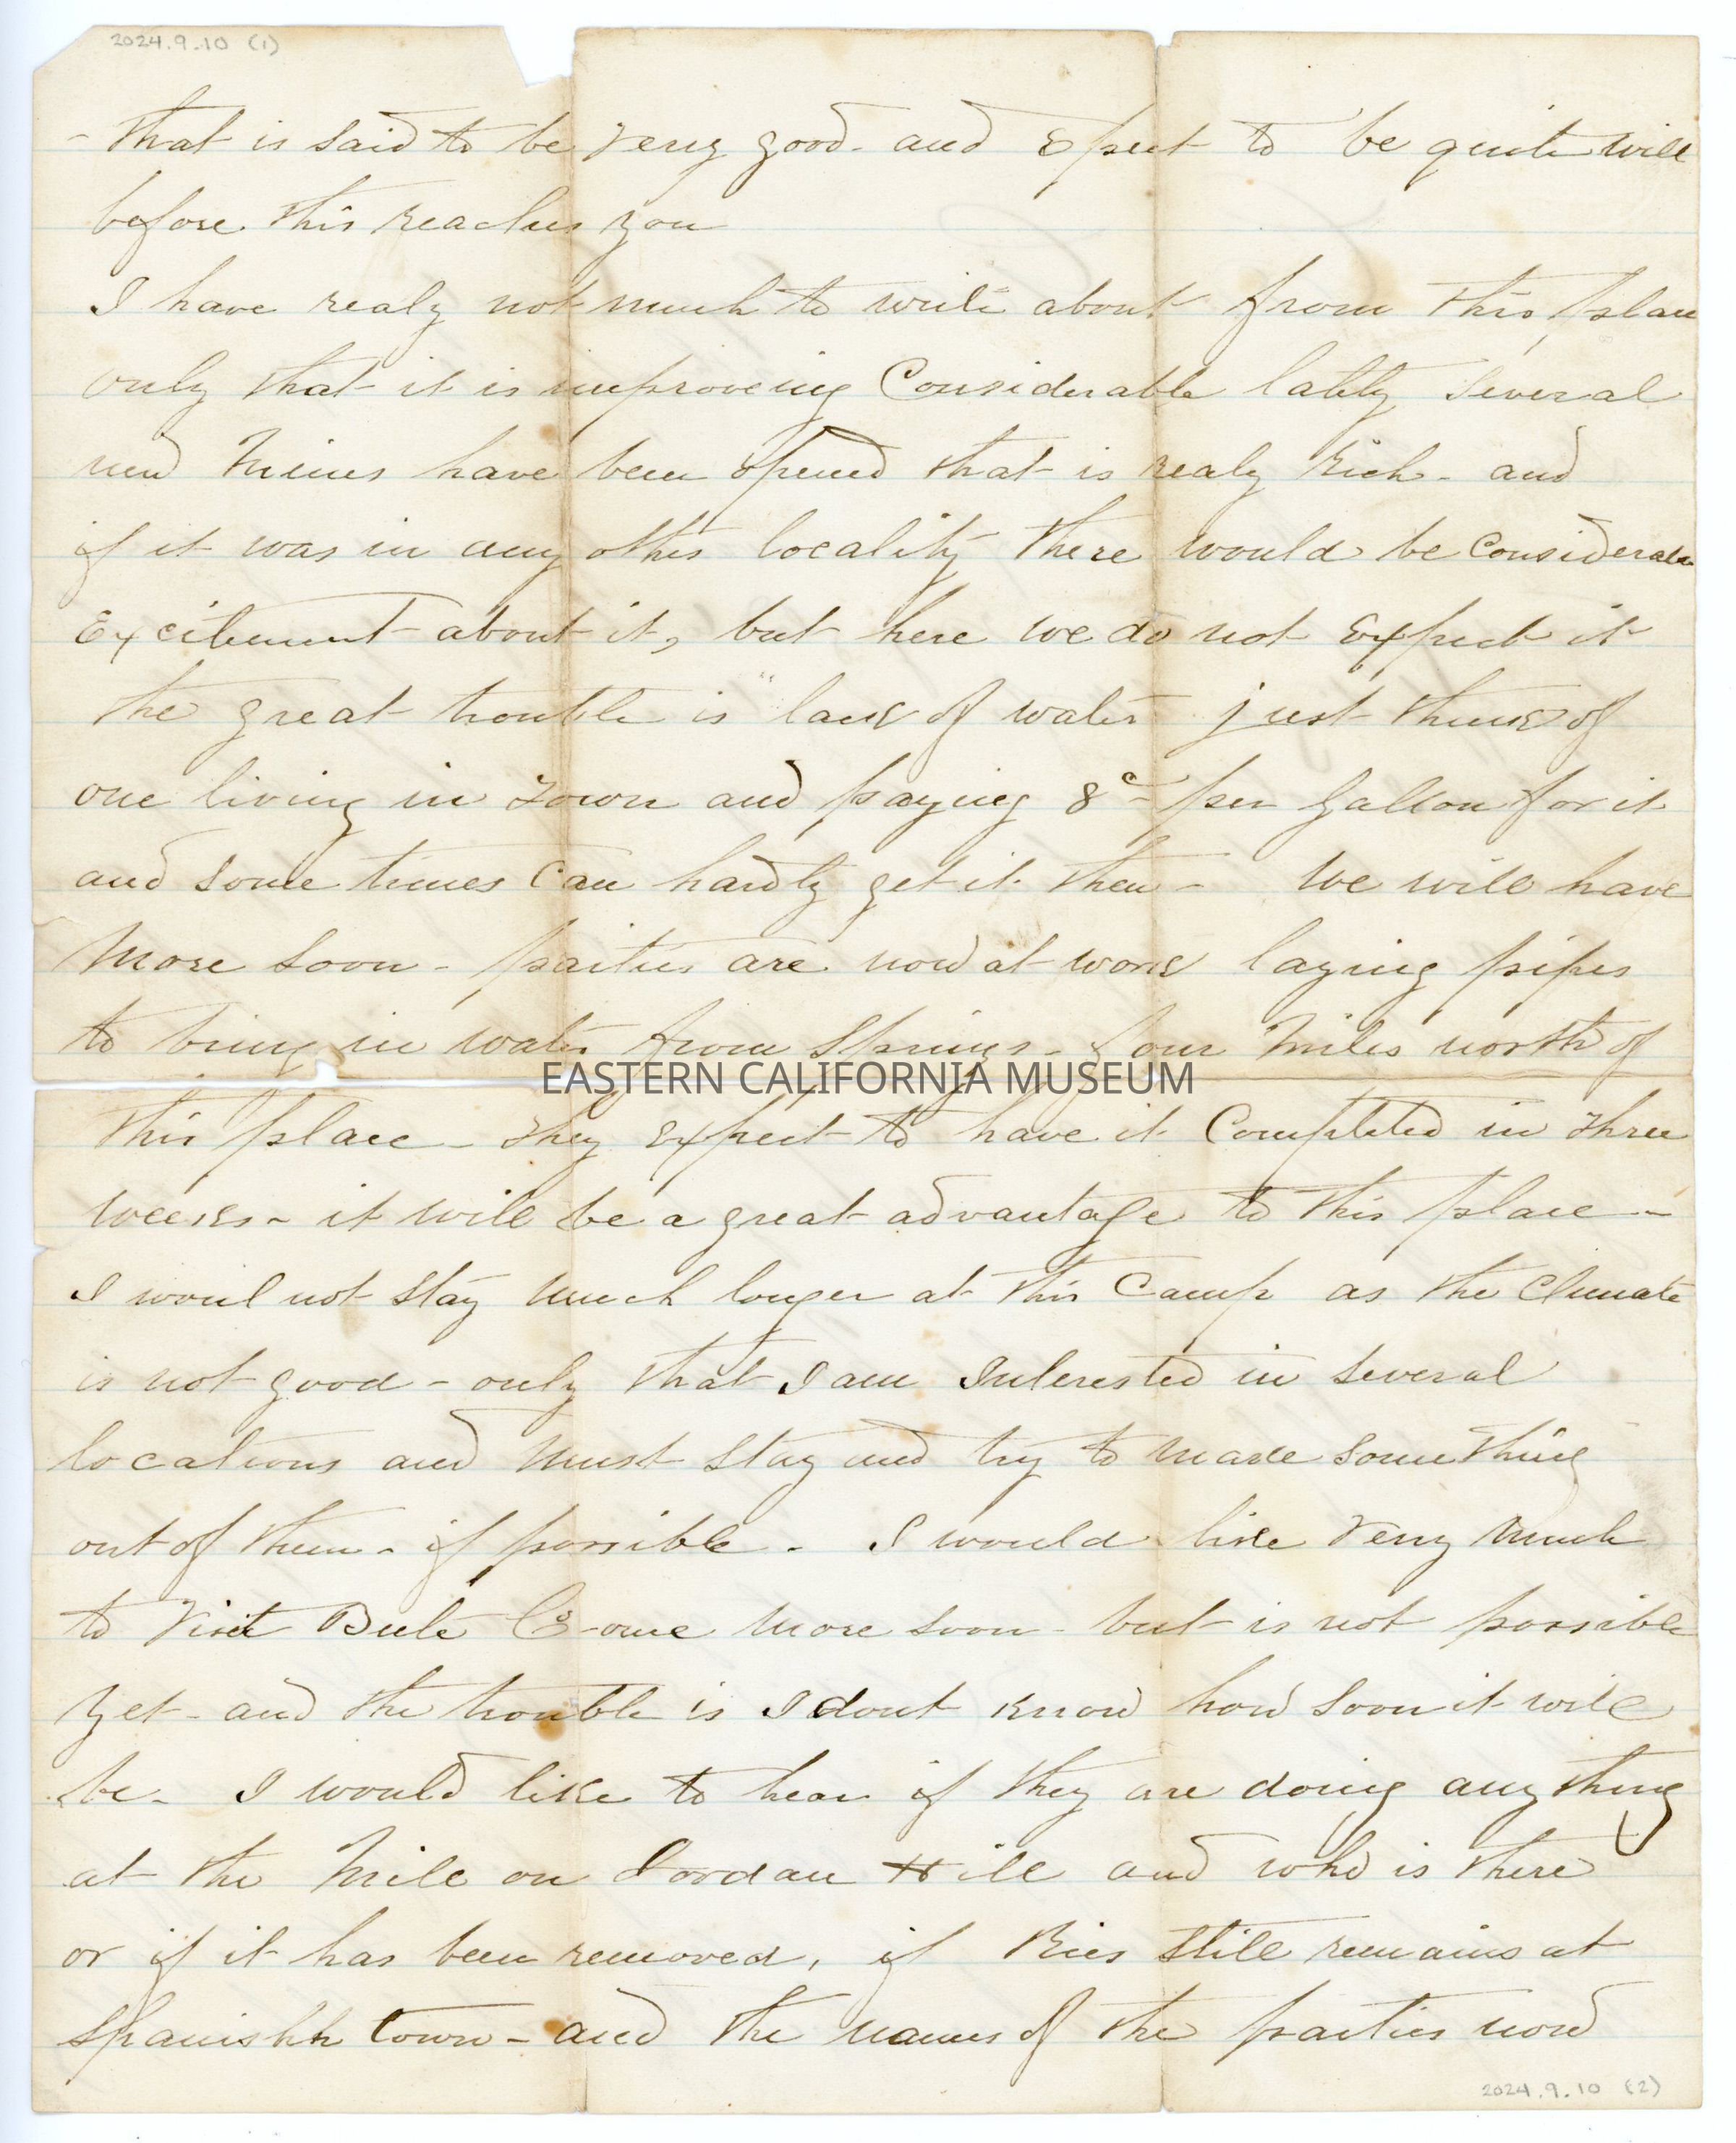 2024.9.10 (1)
- that is said to be very good - and Expect to be quite well
before this reaches you
I have realy not much to write about from this place
only that it is improveing Considerable lately several
new Mines have been opened that is realy Rich - and
if it was in any other locality there would be Considerable
Excitement about it, but here we do not Expect it
the great trouble is "lack of water just think of
one living in Town and paying 8c per gallon for it
and some times Can hardly get it then - We will have
More soon - parties are now at work laying pipes
to bring in water from Springs - four Miles north of
EASTERN CALIFORNIA MUSEUM
this place - They Expect to have it Completed in three
weeks - it will be a great advantage to this place -
I would not stay Much longer at this Camp as the Climate
is not good - only that I am Interested in Several
locations and Must stay and try to Make some thing
out of them - if possible - I would like Verry Much
to Visit Bute Co - once More soon - but is not possible
yet - and the trouble is I dont Know how soon it will
be - I would like to hear if they are doing any thing
at the Mill on Jordan Hill and who is there
or if it has been removed, if Rice still remains at
Spanishh town - and the names of the parties now
2024.9.10 (2)